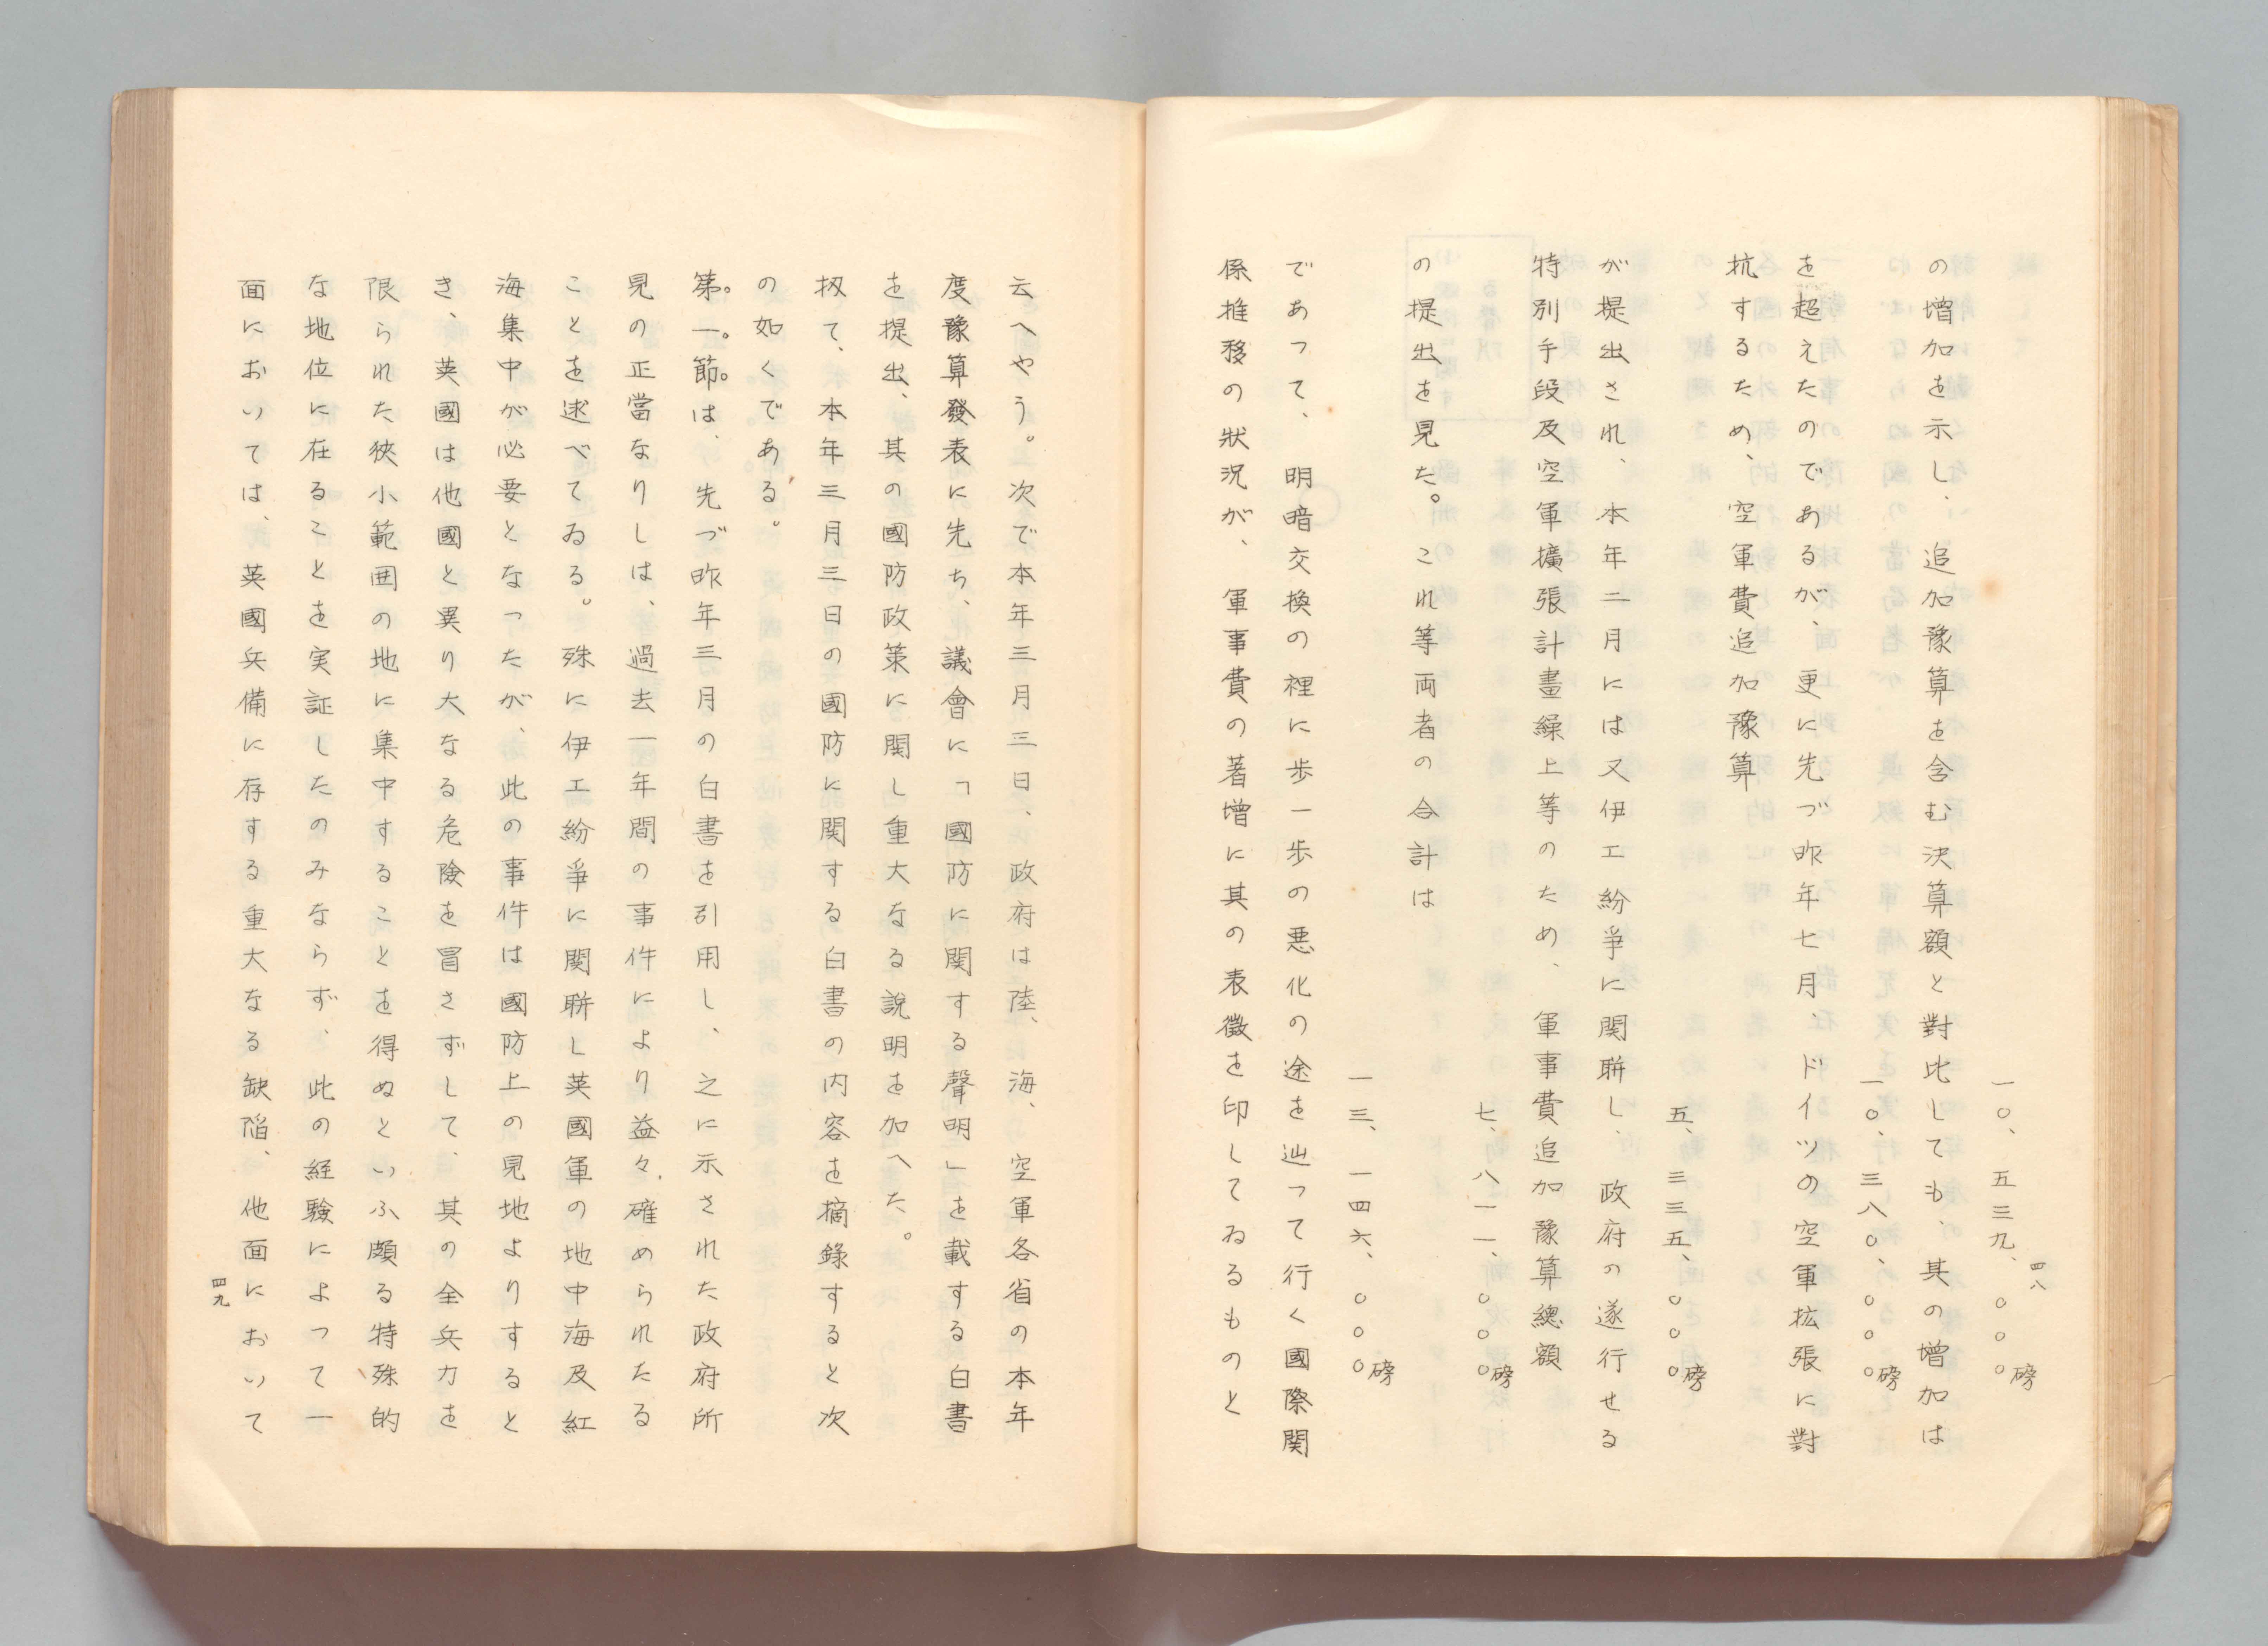 四八
一〇、五三九、〇〇〇磅
の増加を示し、追加豫算を含む決算額と對比しても、其の増加は
一〇、三八〇、〇〇〇磅
を超えたのであるが、更に先づ昨年七月、ドイツの空軍拡張に對
抗するため、空軍費追加豫算
五、三三五、〇〇〇磅
が提出され、本年二月には又伊工紛爭に関聯し、政府の遂行せる
特別手段及空軍擴張計畫繰上等のため、軍事費追加豫算總額
七、八一一、〇〇〇磅
の提出を見た。これ等両者の合計は
一三、一四六、〇〇〇磅
であって、明暗交換の裡に歩一歩の悪化の途を辿って行く國際関
係推移の狀況が、軍事費の著增に其の表徵を印してゐるものと
云へやう。次で本年三月三日、政府は陸、海、空軍各省の本年
度豫算發表に先ち、議會に「國防に関する聲明」を載する白書
を提出、其の國防政策に関し重大なる說明を加へた。
扨て、本年三月三日の國防に関する白書の内容を摘錄すると次
の如くである。
第一節は、先づ昨年三月の白書を引用し、之に示された政府所
見の正當なりしは、過去一年間の事件により益々確められたる
ことを述べてゐる。殊に伊工紛爭に関聯し英國軍の地中海及紅
海集中が必要となったが、此の事件は國防上の見地よりすると
き、英國は他國と異り大なる危險を冒さずして、其の全兵力を
限られた狹小範囲の地に集中することを得ぬといふ頗る特殊的
な地位に在ることを実証したのみならず、此の経驗によって一
面においては、英國兵備に存する重大なる缺陷、他面において
四九